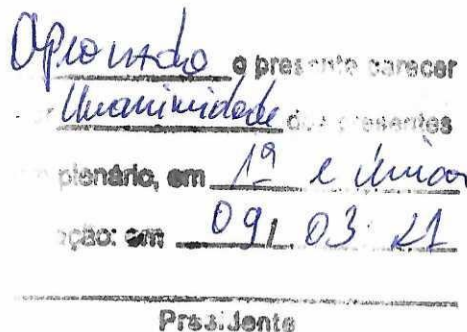 Aprovado o presente parecer
Unanimidade dos presentes
plenário, em 1ª e única
ção: em 09, 03 21
Presidente